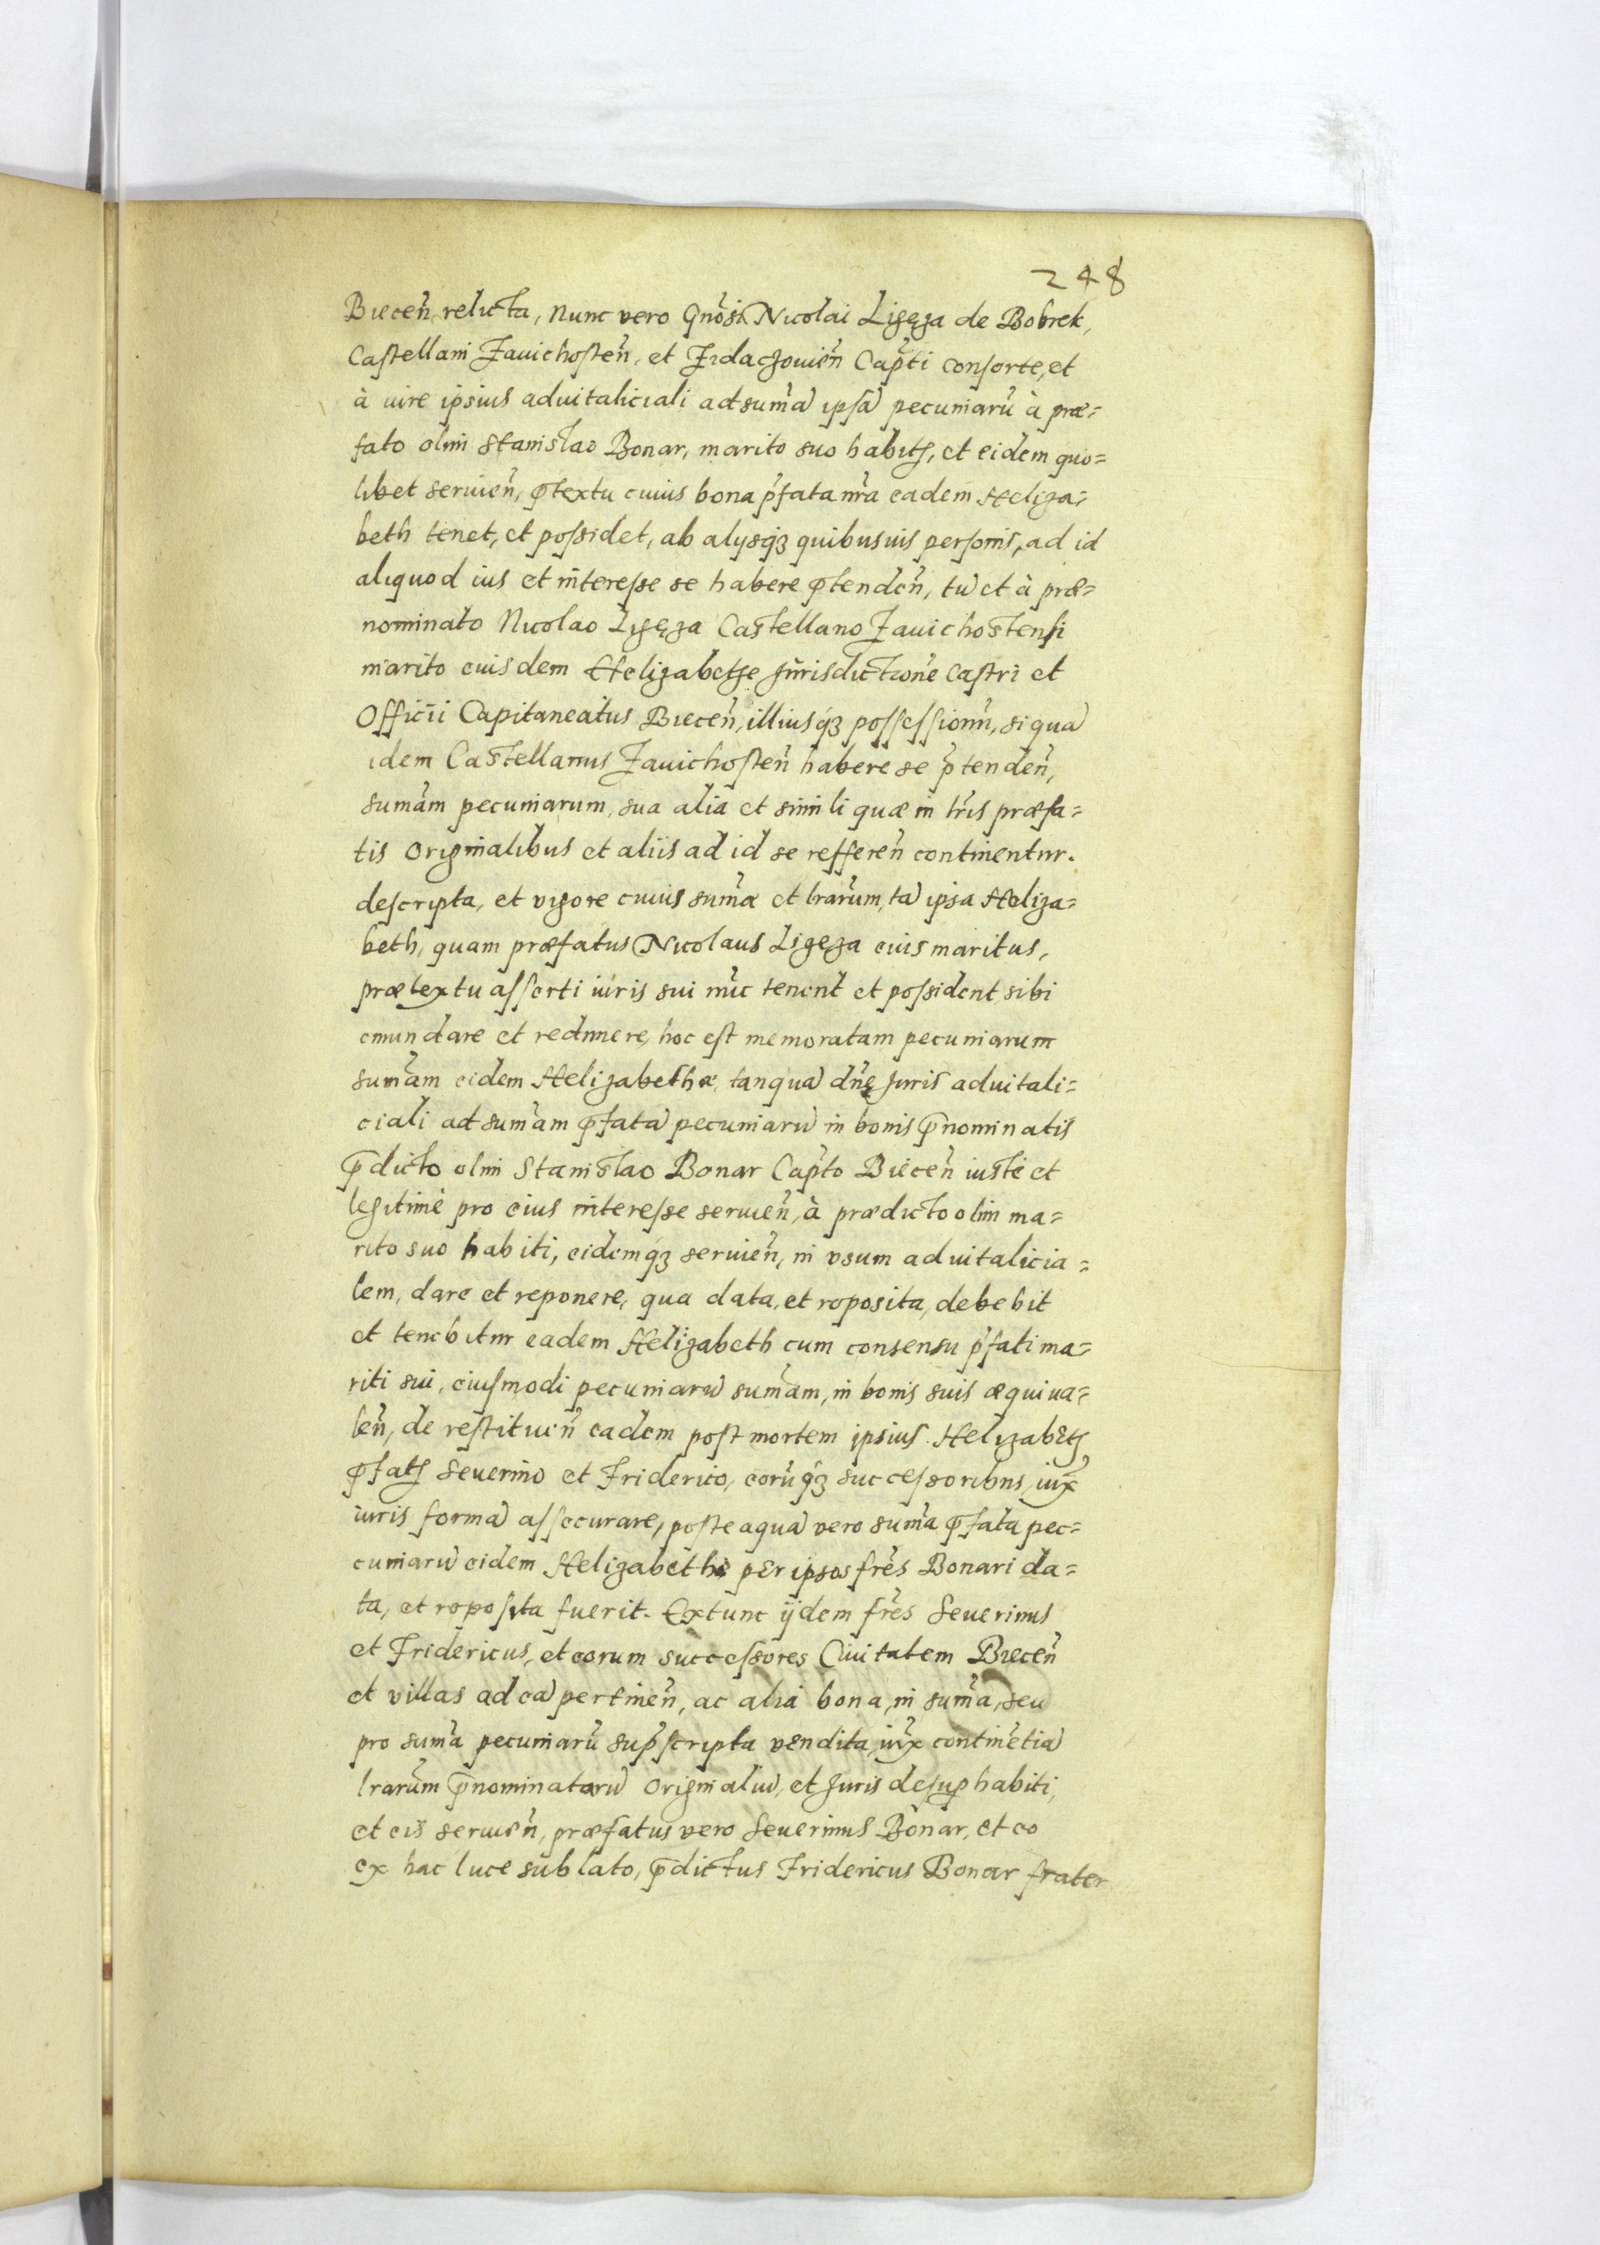 248
Biecen̄ relicta, nunc vero Gn̄osi Nicolai Ligęza de Bobrek,
Castellani Zavichosten̄, et Zidaczouien̄ Cap̄ti consorte, et
à iure ipsius aduitaliciali ad sum̄ā ipsā pecuniarū à præ=
fato olim Stanislao Bonar, marito suo habitę, et eidem quo=
libet seruien̄, p̄textu cuius bona p̄fata n̄ra eadem Heliza=
beth tenet, et possidet, ab alysq3 quibusuis personis, ad id
aliquod ius et interesse se habere p̄tenden̄, tū et à præ=
nominato Nicolao Ligęza Castellano Zauichostensi
marito euisdem Helizabethæ Jurisdictione Castri et
Officii Capitaneatus Biecen̄, illiusq3 possessionū, si quā
idem Castellanus Zauichosten̄ habere se p̄tenden̄,
sum̄am pecuniarum, sua alia et simili quæ in lr̄is præfa=
tis Originalibus et aliis ad id se refferen̄ continentur.
descripta, et vigore cuius sum̄æ et lr̄arum, tā ipsa Heliza=
beth, quam præfatus Nicolaus Ligęza eius maritus,
prætextu asserti iuris sui nūc tenent et possident, sibi
emundare et redimere, hoc est memoratam pecuniarum
sum̄am eidem Helizabethæ, tanquā dn̄ę Juris aduitali=
ciali ad sum̄am p̄fatā pecuniarū in bonis p̄nominatis
p̄dicto olim Stanislao Bonar Cap̄to Biecen̄ iustè et
legitimè pro eius interesse seruien̄, à prædicto olim ma=
rito suo habiti, eidemq3 seruien̄, in vsum aduitalicia=
lem, dare et reponere, qua data, et roposita, debebit
et tenebitur eadem Helizabeth cum consensu p̄fati ma=
riti sui, eiusmodi pecuniarū sum̄am, in bonis suis æquiua=
len̄, de restituen̄ eadem post mortem ipsius Helizabetę
p̄fatę Seuerino et Friderico, eorūq3 successoribus, iux̄
iuris formā assecurare, posteaquā vero sum̄a p̄fata pec=
cuniarū eidem Helizabethæ per ipsos fr̄es Bonari da=
ta, et roposita fuerit. Extunc ijdem fr̄es Seuerinus
et Fridericus, et eorum successores Ciuitatem Biecen̄
et villas ad eā pertinen̄, ac alia bona, in sum̄a, seu
pro sum̄a pecuniarū sup̄scripta vendita, iux̄ contin̄etiā
lr̄arum p̄nominatarū Originaliū, et Juris desup̱ habiti,
et eis seruien̄, præfatus vero Seuerinus Bonar, et eo
ex hac luce sublato, p̄dictus Fridericus Bonar frater